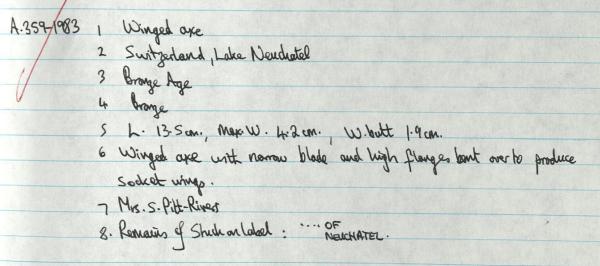 A.359-1983 1 Winged axe
2 Switzerland, Lake Neuchatel
3 Bronze Age
4 Bronze
5 L. 13.5cm., Max W. 4.2cm., W. butt 1.9cm.
6 Winged axe with narrow blade and high flanges bent over to produce
socket wings.
7 Mrs. S. Pitt-Rivers
8. Remains of Stuck on label: .... OF
NEUCHATEL.